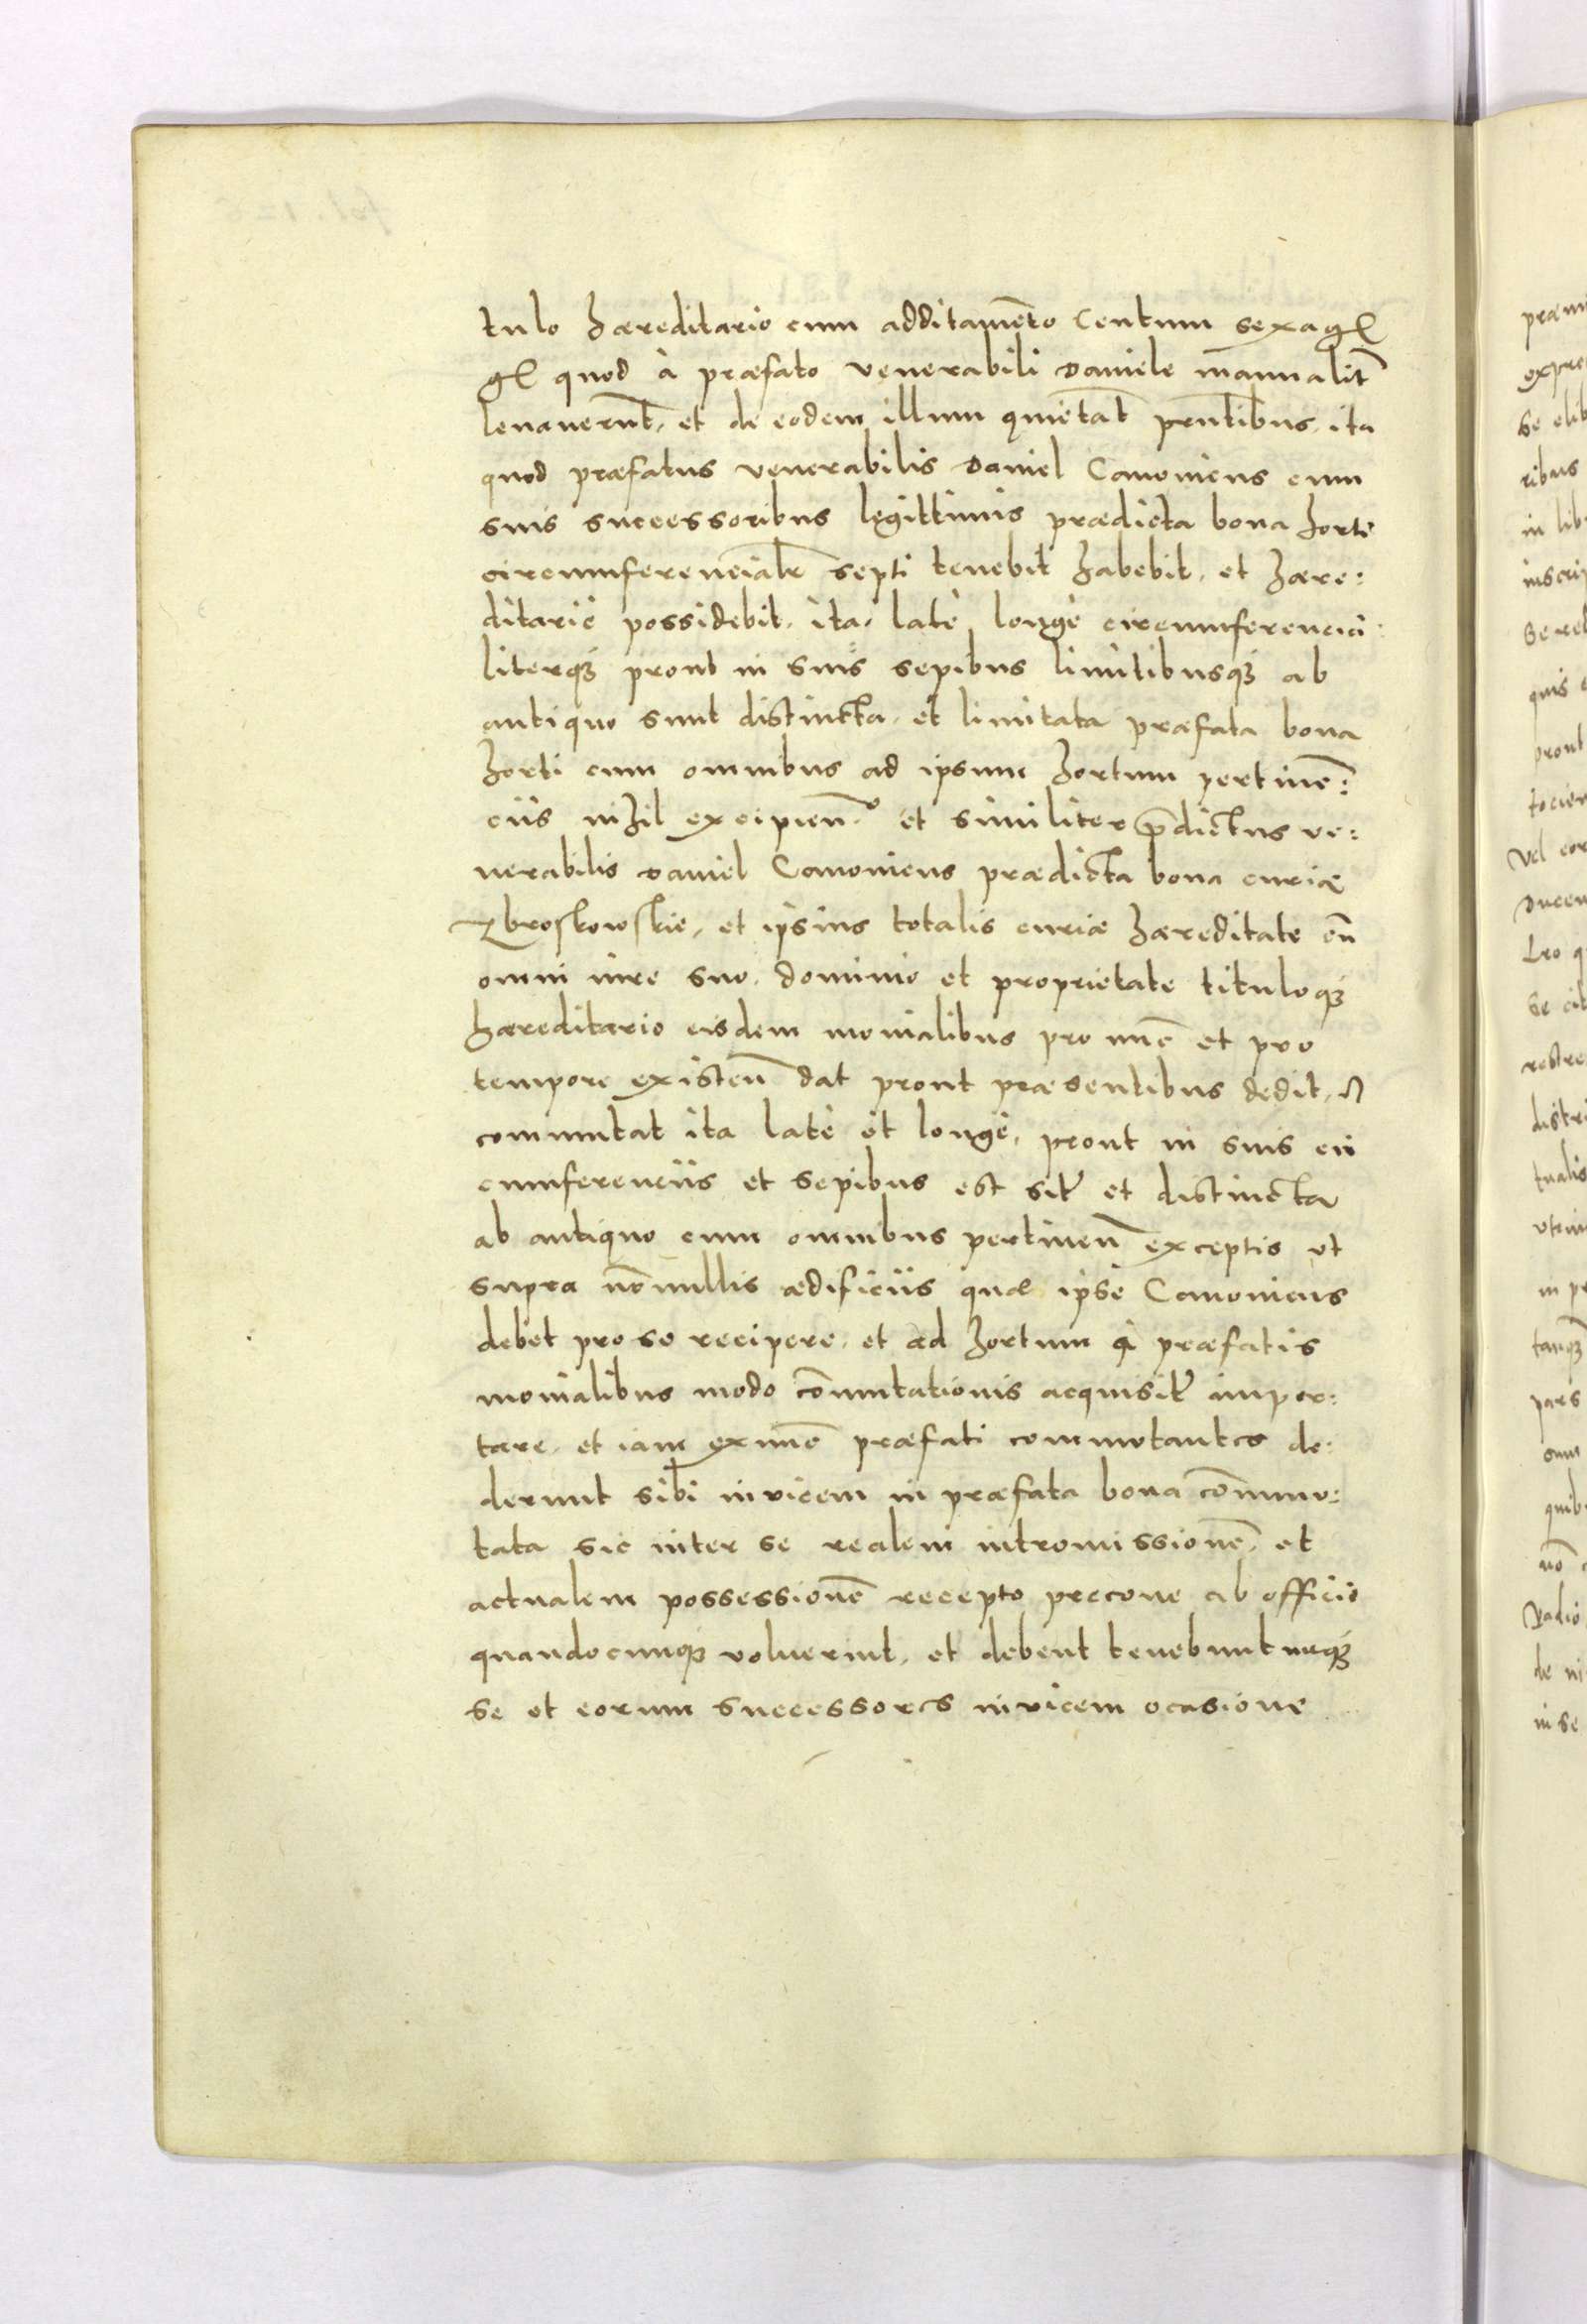 tulo hæreditario cum additamēto Centum sexagͫ
gͬ quod à præfato venerabili Daniele manualit̄
leuauerūt, et de eodem illum quietāt pnt̄ibus, ita
quod præfatus venerabilis Daniel Canonicus cum
suis successoribus legittimis prædicta bona horti
circumferencialr̄ septi tenebit habebit, et hære:
ditariè possidebit, ita, latè longè circumferencia:
literq́ꝫ prout in suis sepibus limitibusq́ꝫ ab
antiquo sunt distinctta, et limitata præfata bona
horti cum omnibus ad ipsum hortum pertinē:
ciis nihil excipien̄.º et similiter p̄dictus ve:
nerabilis Daniel Canonicus prædicta bona curiæ
Zbroskowskie, et ipsius totalis curiæ hæreditate cū
omni iure suo, dominio et proprietate tituloq́ꝫ
hæreditario eisdem monialibus pro nūc et pro
tempore existen̄ dat prout præsentibus dedit, ⁊
commutat ita latè et longè, prout in suis cir
cumferenciis et sepibus est sitᷓ et distincta
ab antiquo cum omnibus pertinen̄ exceptis ut
supra nōnullis ædificiis quæ ipse Canonicus
debet pro se recipere, et ad hortum à præfatis
monialibus modo cōmutationis acquisitᷓ impor:
tare, et iam ex nūc præfati commutantes de:
derunt sibi invicem in præfata bona cōmmu:
tata sic inter se realem intromissionē, et
actualem possessionē recepto precone ab officio
quandocunq́ꝫ voluerint, et debent tenebunturq́ꝫ
se et eorum successores invicem ocasione